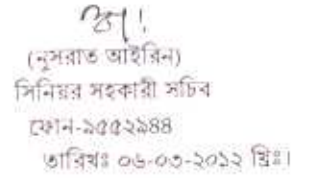 (নুসরাত আইরিন)
সিনিয়র সহকারী সচিব
ফোন-৯৫৫২৯৪৪
তারিখঃ ০৬-০৩-২০১২ খ্রিঃ।